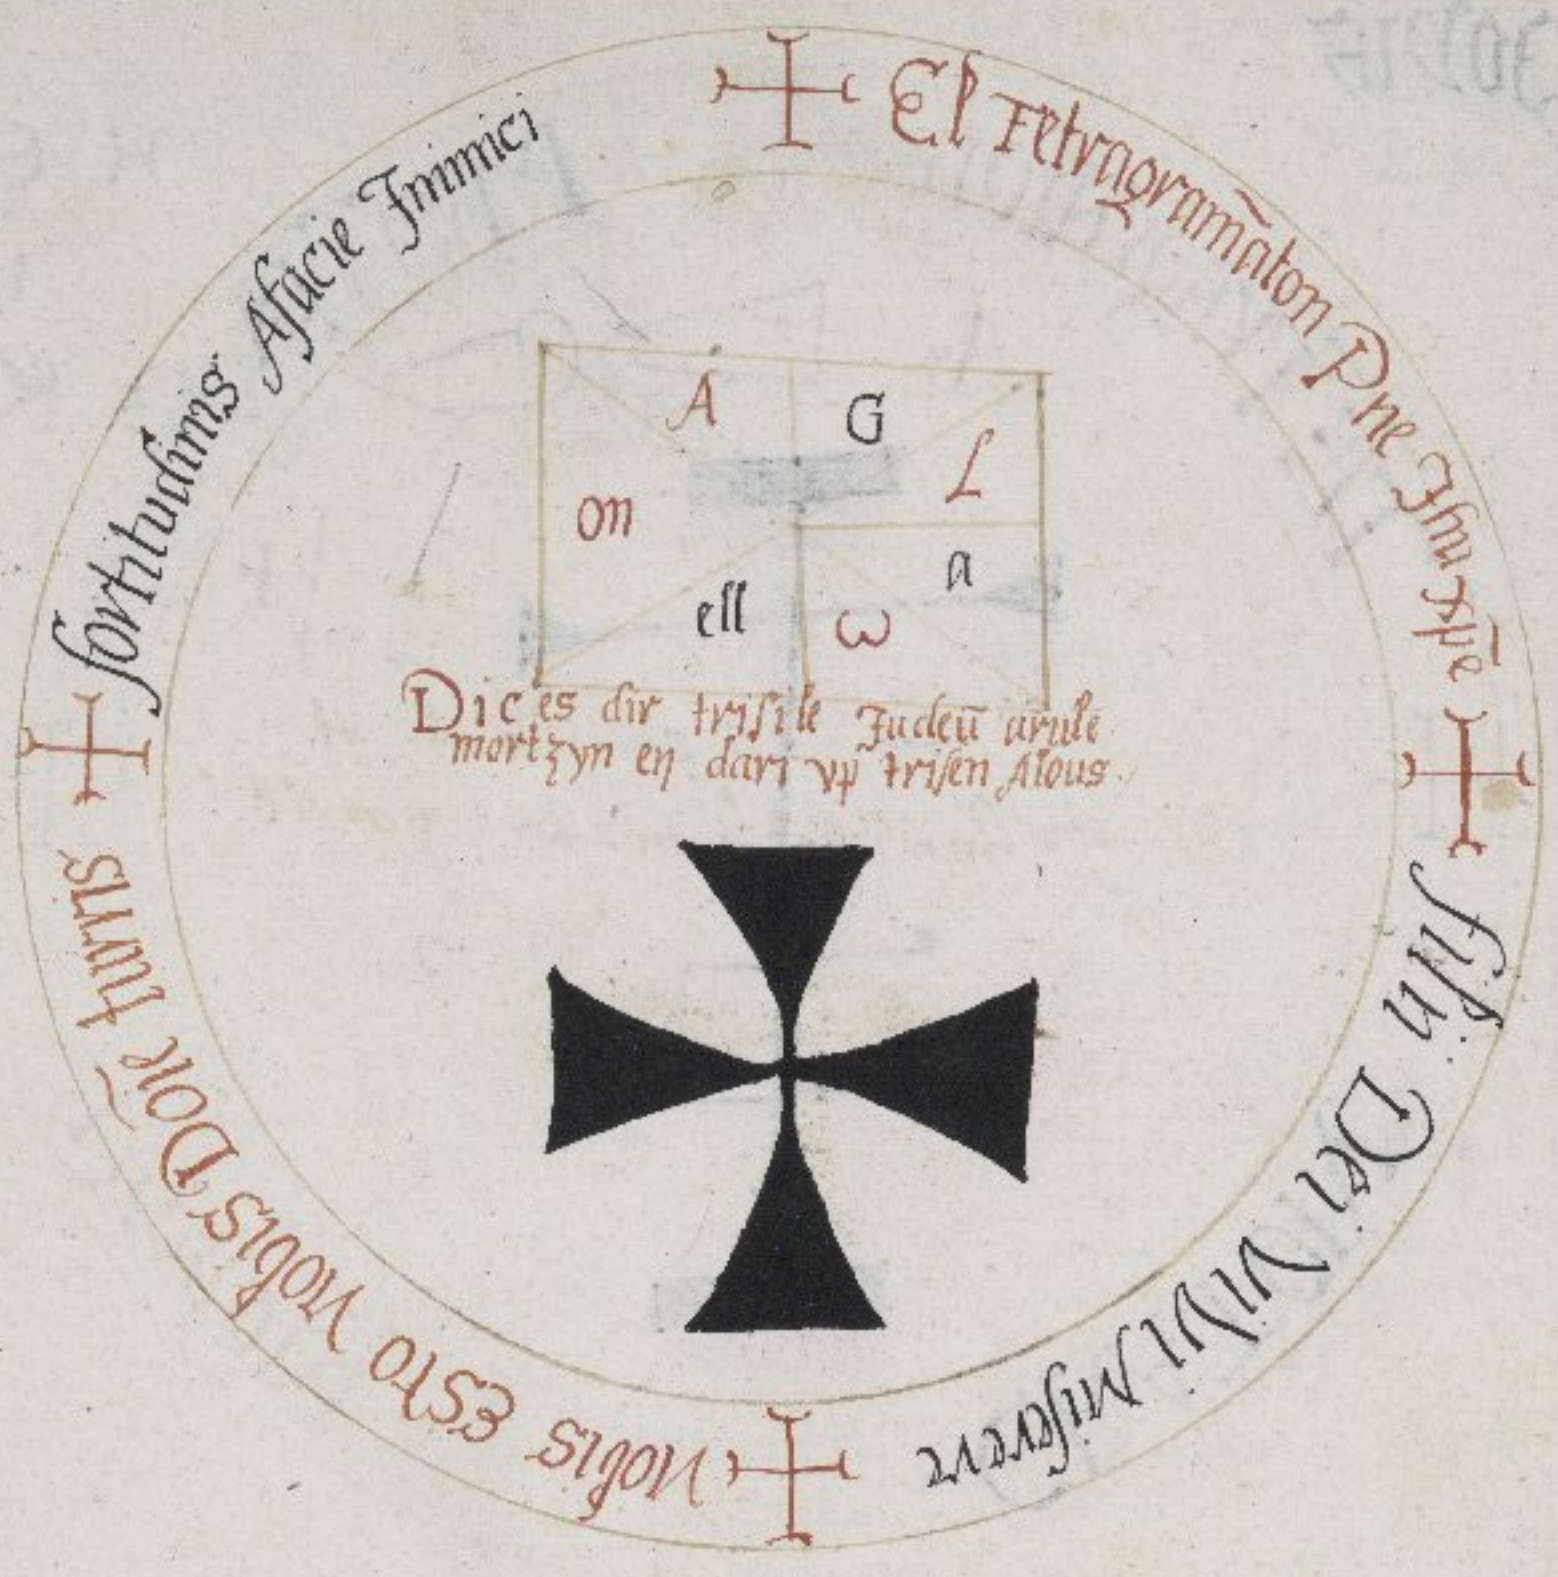 El Tetragram̄aton Dne Jhu xp̄e
filii Dei vivi Miserere
Nobis Esto Nobis Dōīe turris
fortitudinis Afacie Jnimici
A G
L
on
a
ell ω
Dic es dir trisile Judeū
mortzyn en dari vp trisen Alous